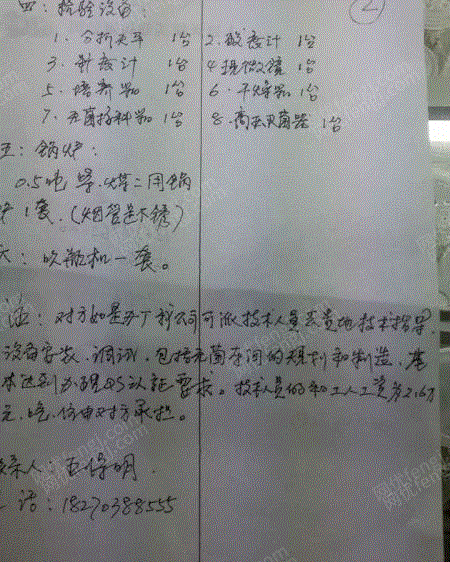 四：检验设备： ②
1、分析天平 1台 2、酸度计 1台
3、 计 1台 4、显微镜 1台
5、培养箱 1台 6、干燥箱 1台
7、无菌接种箱 1台 8、高压灭菌器 1台
五：锅炉：
0.5吨 煤二用锅
炉1套.（烟管是不锈）
六：吹瓶机一套。
注：对方如是办厂我公司可派技术人员去员地技术指导
设备安装、调试、包括无菌车间的规划和制造，基
本达到办理QS认证要求。技术人员的 工资为2.6万
元，吃、住由对方承担。
联系人：王保明.
话：18270388555